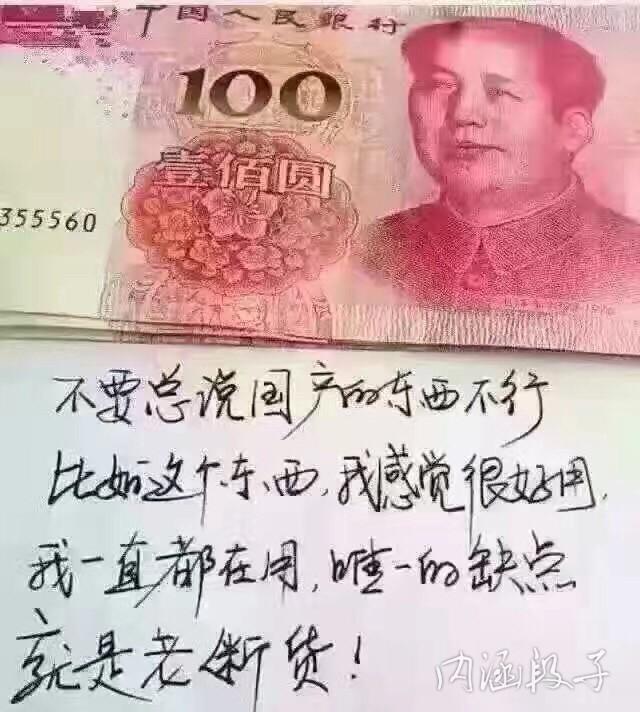 中国人民银行
100
壹佰圆
355560
不要总说国产的东西不行
比如这个东西,我感觉很好用,
我一直都在用,唯一的缺点
就是老断货!
内涵段子